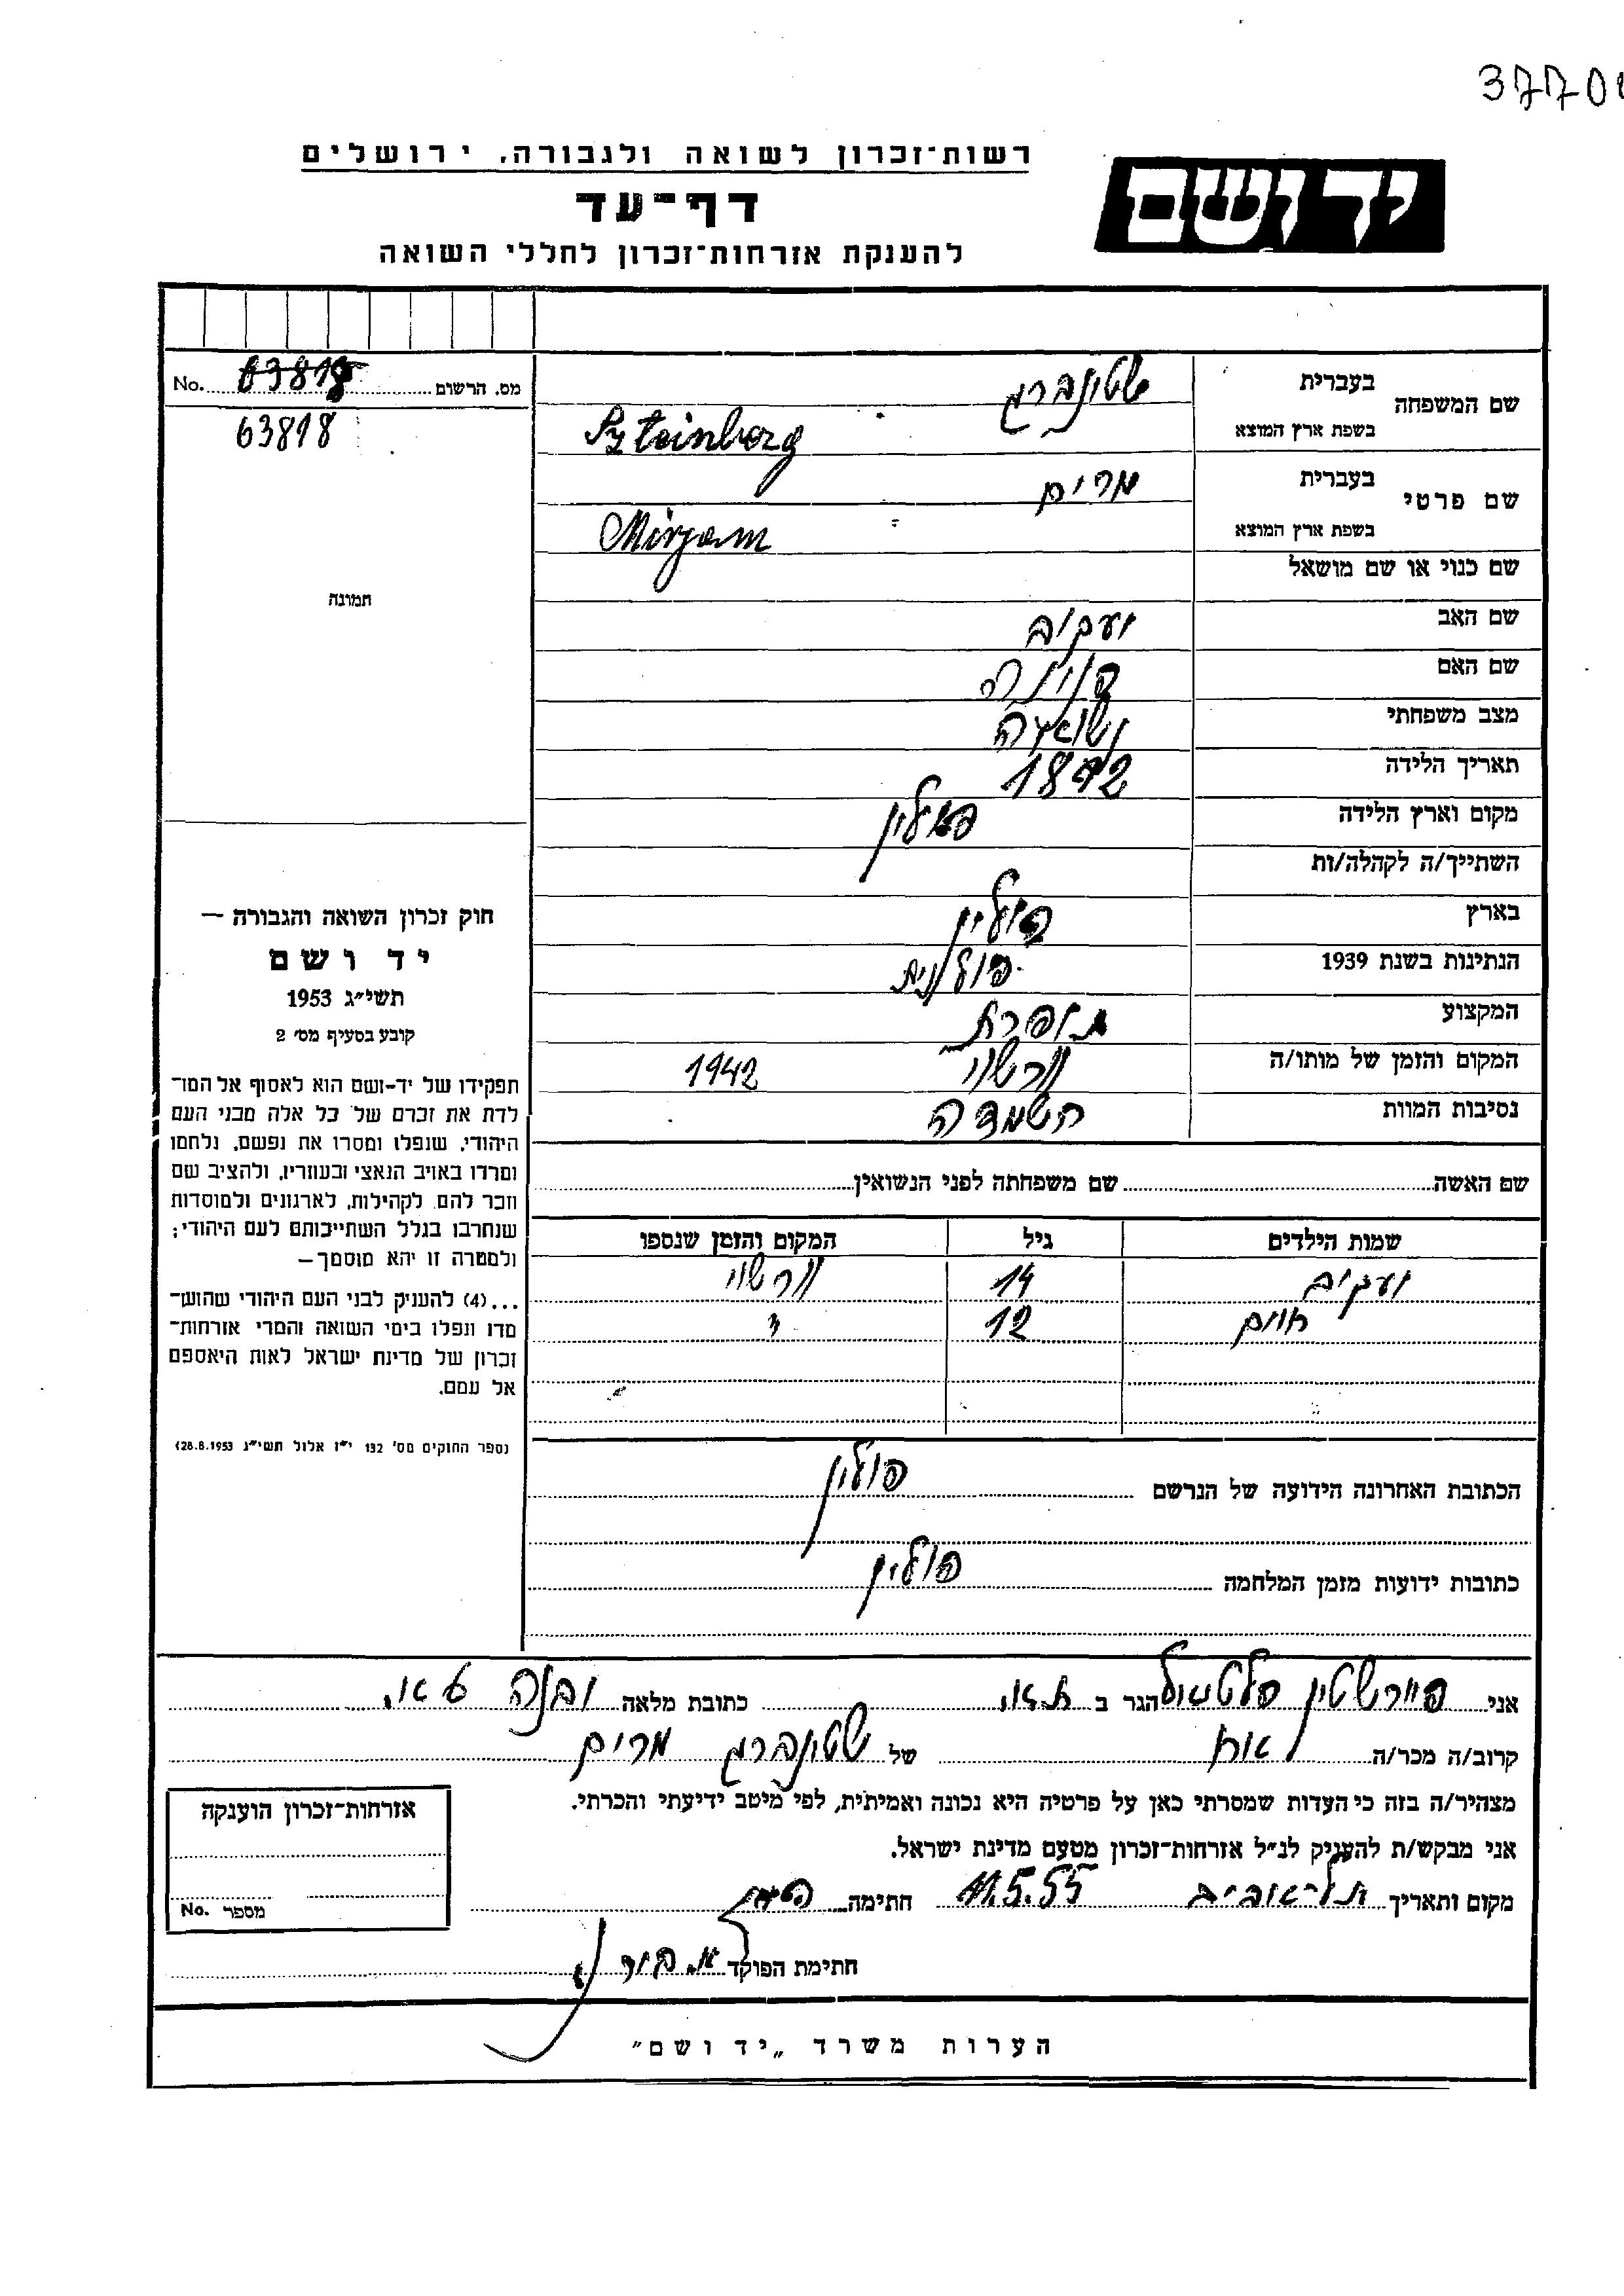 37708
רשות־זכרון לשואה ולגבורה, ירושלים
יד ושם
דף־עד
להענקת אזרחות־זכרון לחללי השואה
מס. הרשום No. 63818
63818
תמונה
שם המשפחה בעברית שטינברג
בשפת ארץ המוצא Szteinberg
שם פרטי בעברית מרים
בשפת ארץ המוצא Mirjam
שם כנוי או שם מושאל
שם האב יעקוב
שם האם
מצב משפחתי נשואה
תאריך הלידה
מקום וארץ הלידה פולין
השתייך/ה לקהלה/ות
בארץ פולין
הנתינות בשנת 1939 פולנית
המקצוע תופרת
המקום והזמן של מותו/ה ורשוי 1942
נסיבות המוות השמדה
שם האשה שם משפחתה לפני הנשואין
שמות הילדים גיל המקום והזמן שנספו
יעקוב 14 ורשוי
חיים 12 "
הכתובת האחרונה הידועה של הנרשם פולין
כתובות ידועות מזמן המלחמה פולין
חוק זכרון השואה והגבורה —
יד ושם
תשי״ג 1953
קובע בסעיף מס׳ 2
תפקידו של יד-ושם הוא לאסוף אל המו־
לדת את זכרם של כל אלה מבני העם
היהודי, שנפלו ומסרו את נפשם, נלחמו
ומרדו באויב הנאצי ובעוזריו, ולהציב שם
וזכר להם, לקהילות, לארגונים ולמוסדות
שנחרבו בגלל השתייכותם לעם היהודי;
ולמטרה זו יהא מוסמך—
...(4) להעניק לבני העם היהודי שהוש־
מדו ונפלו בימי השואה והמרי אזרחות־
זכרון של מדינת ישראל לאות היאספם
אל עמם.
(ספר החוקים מס׳ 132 י״ז אלול תשי״ג 28.8.1953)
אני פיירשטין הגר ב ת.א. כתובת מלאה יבנה
קרוב/ה מכר/ה אח של שטינברג מרים
מצהיר/ה בזה כי העדות שמסרתי כאן על פרטיה היא נכונה ואמיתית, לפי מיטב ידיעתי והכרתי.
אני מבקש/ת להעניק לנ״ל אזרחות־זכרון מטעם מדינת ישראל.
מקום ותאריך תל־אביב 11.5.55 חתימה
חתימת הפוקד
אזרחות־זכרון הוענקה
מספר No.
הערות משרד „יד ושם״